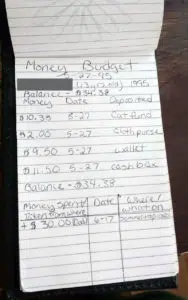 Money Budget
5-27-95
1995
Balance = $34.38
Money Date Deposited
$10.38 5-27 Cat fund
$2.00 5-27 Cloth purse
$9.50 5-27 Wallet
$11.50 5-27 cash box
Balance = $34.38
Money Spent/ Date Where/
Taken from where what on
+ $ 30.00 Dad 6-17